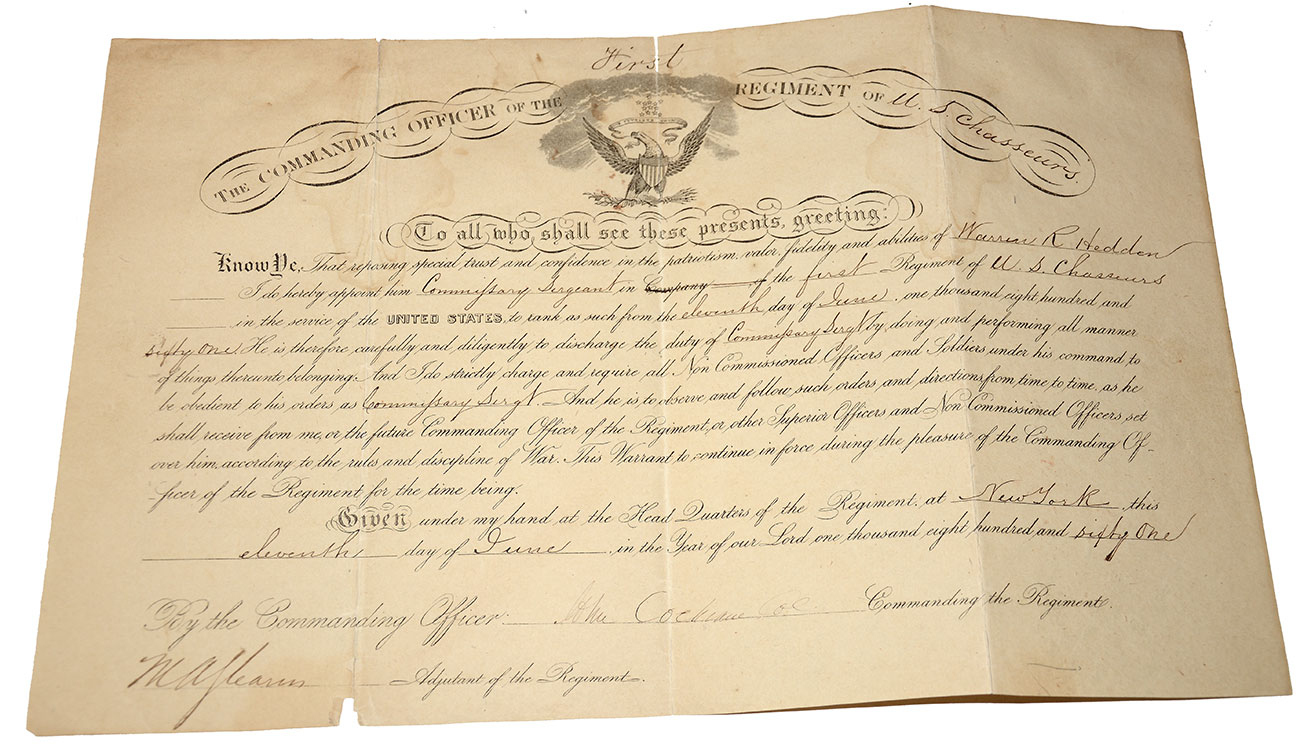 First
THE COMMANDING OFFICER OF THE REGIMENT OF U. S. Chasseurs.
To all who shall see these presents, greeting:
Know Ye, That reposing special trust and confidence in the patriotism, valor, fidelity and abilities of Warren R Hedden
I do hereby appoint him Commissary Sergeant in Company of the first Regiment of U. S. Chasseurs
in the service of the UNITED STATES, to rank as such from the eleventh day of June one thousand eight hundred and
sixty One He is therefore carefully and diligently to discharge the duty of Commissary SergT by doing and performing all manner
of things thereunto belonging. And I do strictly charge and require all Non Commissioned Officers and Soldiers under his command to
be obedient to his orders as Commissary SergT. And he is to observe and follow such orders and directions from time to time, as he
shall receive from me, or the future Commanding Officer of the Regiment, or other Superior Officers and Non Commissioned Officers set
over him, according to the rules and discipline of War. This Warrant to continue in force during the pleasure of the Commanding Of-
ficer of the Regiment for the time being.
Given under my hand at the Head Quarters of the Regiment, at New York this
eleventh day of June in the Year of our Lord one thousand eight hundred and sixty One
By the Commanding Officer John Cochrane Col Commanding the Regiment.
Adjutant of the Regiment.